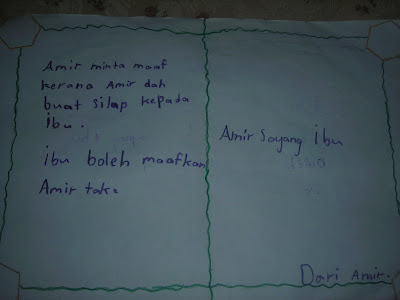 Amir minta maaf
kerana Amir dah
buat silap kepada
ibu.
ibu boleh maafkan
Amir tak?
Amir Sayang ibu
Dari Amir.